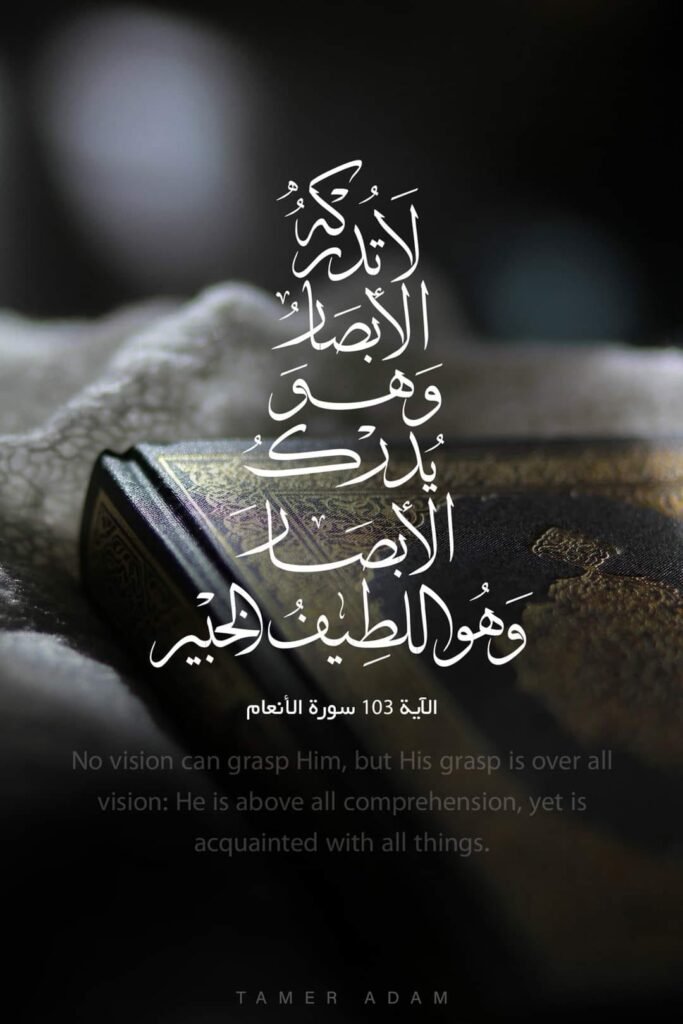 لَا تُدْرِكُهُ
الْأَبْصَارُ
وَهُوَ
يُدْرِكُ
الْأَبْصَارَ
وَهُوَ اللَّطِيفُ الْخَبِيرُ
الآية 103 سورة الأنعام
No vision can grasp Him, but His grasp is over all
vision: He is above all comprehension, yet is
acquainted with all things.
TAMER ADAM